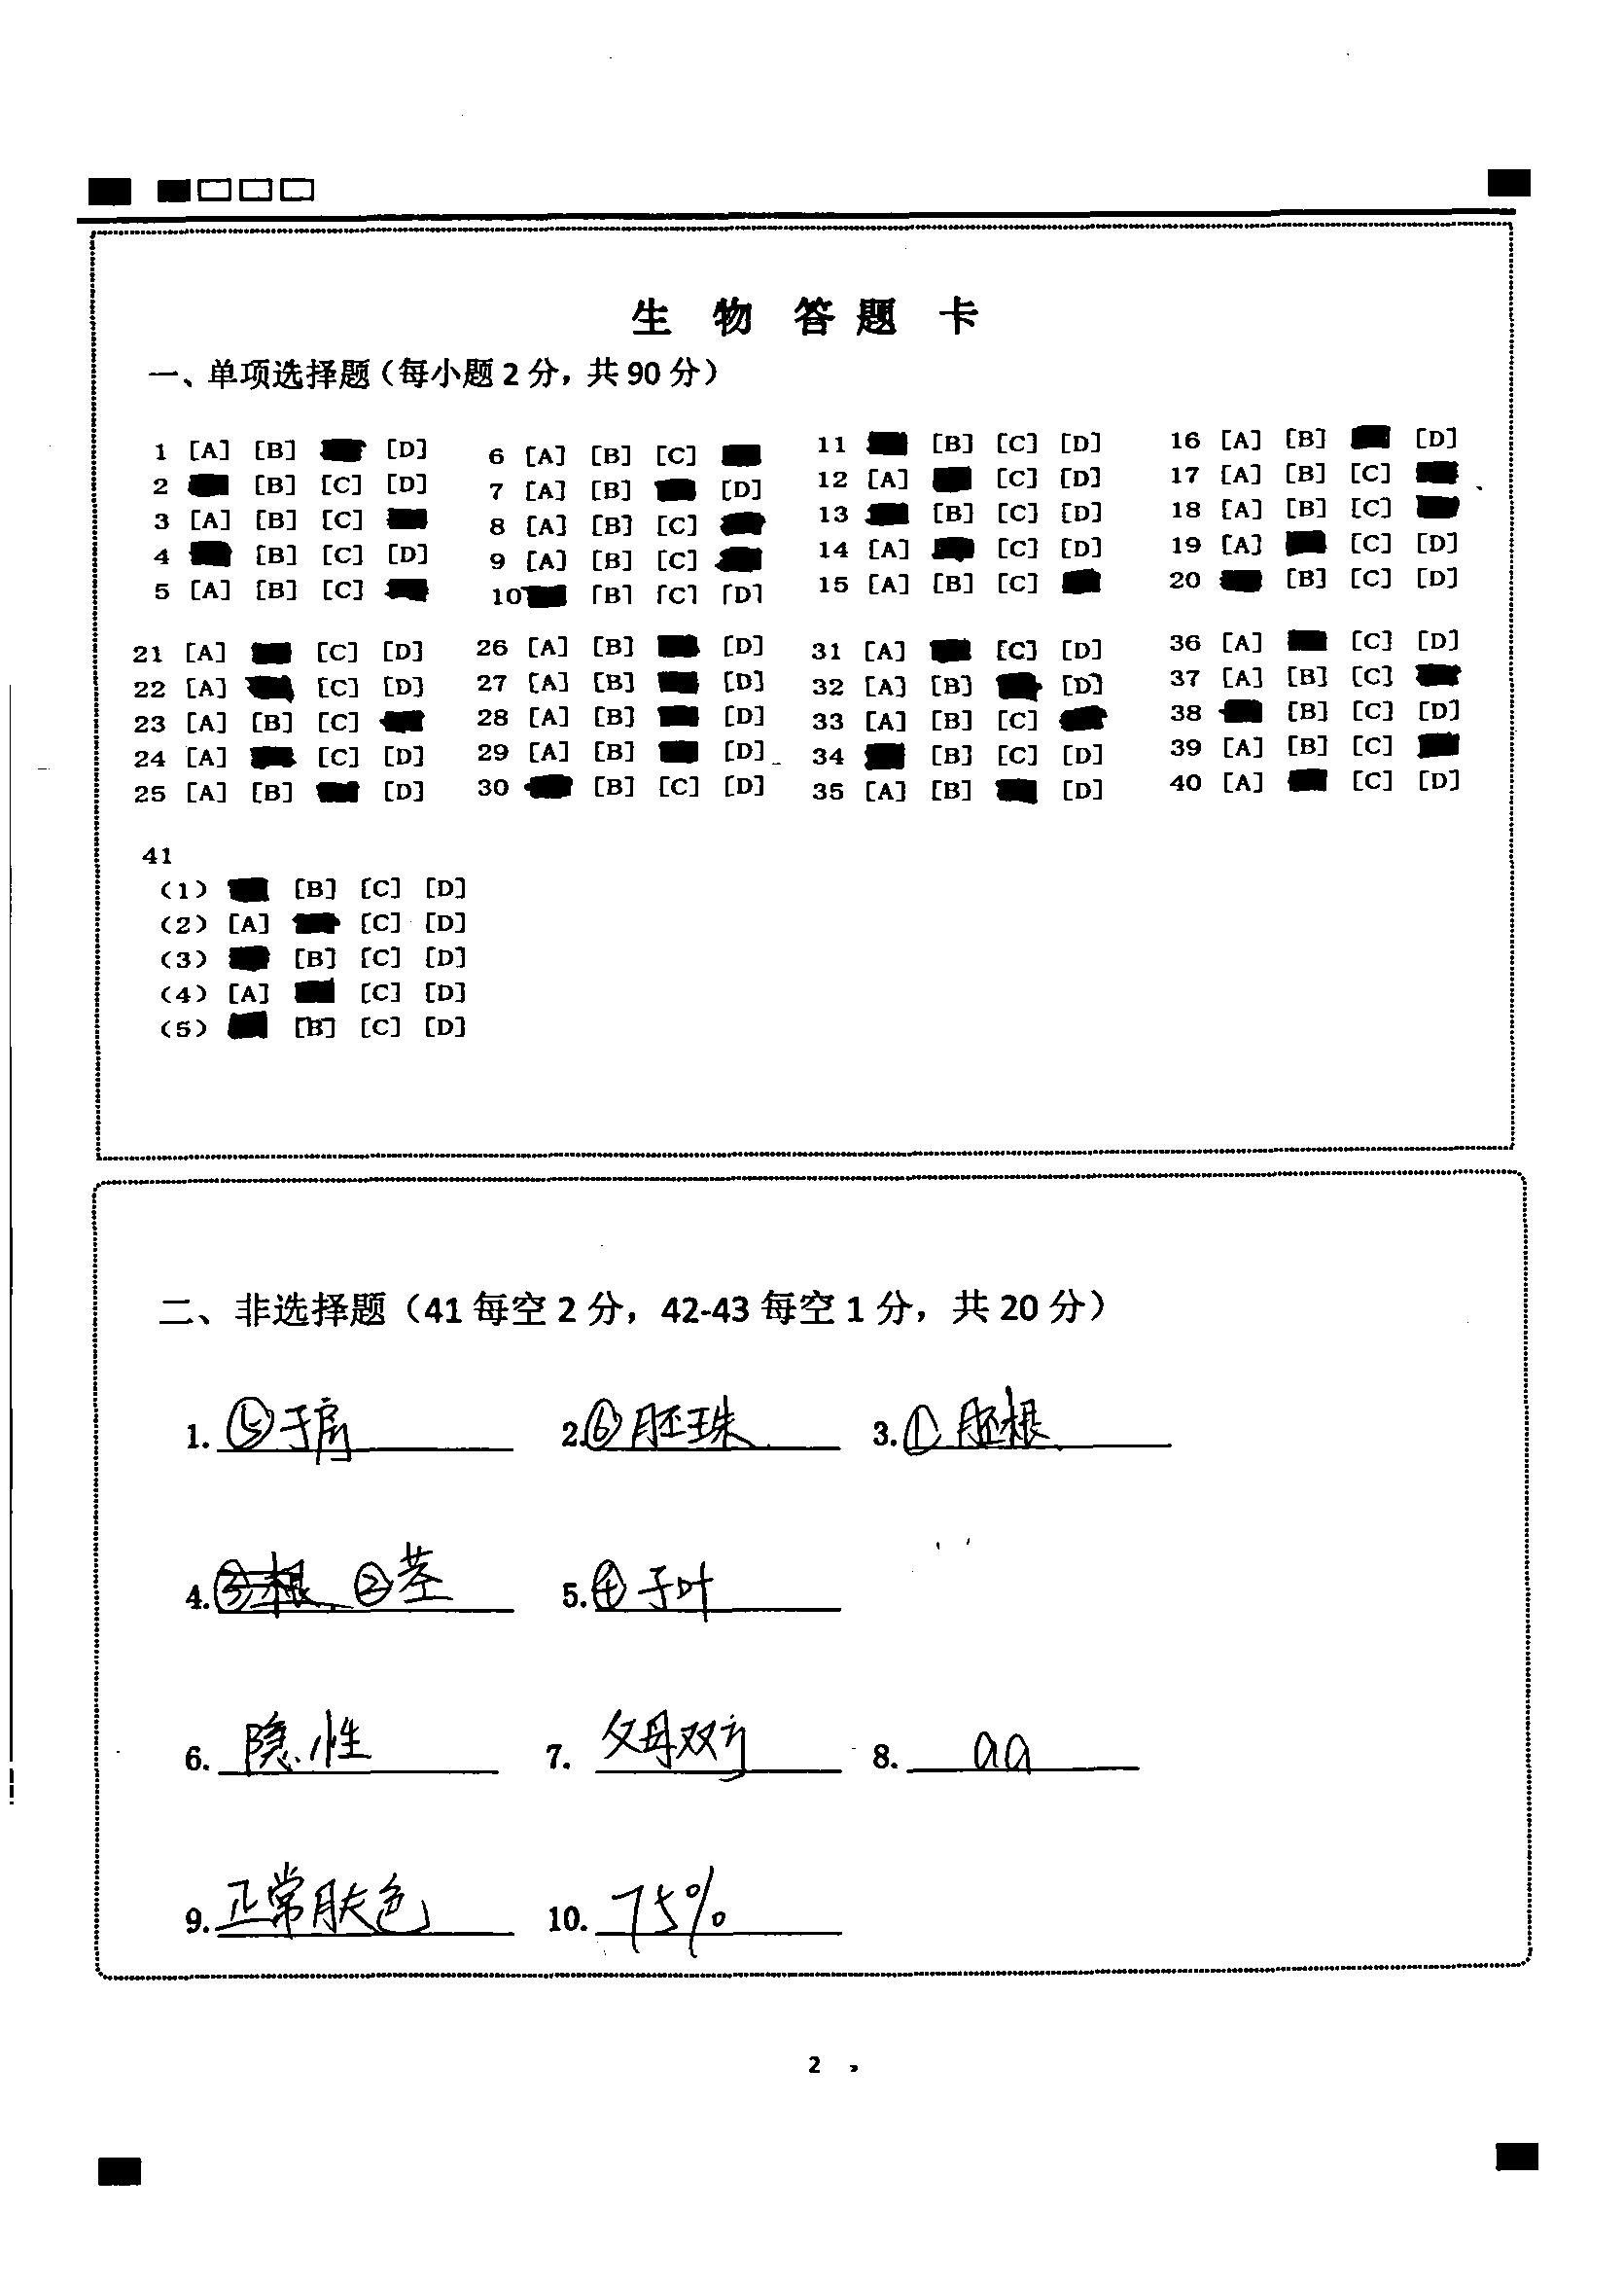 生 物 答 题 卡
一、单项选择题（每小题 2 分，共 90 分）
1 [A] [B] [D]
2 [B] [C] [D]
3 [A] [B] [C]
4 [B] [C] [D]
5 [A] [B] [C]
6 [A] [B] [C]
7 [A] [B] [D]
8 [A] [B] [C]
9 [A] [B] [C]
10 [B] [C] [D]
11 [B] [C] [D]
12 [A] [C] [D]
13 [B] [C] [D]
14 [A] [C] [D]
15 [A] [B] [C]
16 [A] [B] [D]
17 [A] [B] [C]
18 [A] [B] [C]
19 [A] [C] [D]
20 [B] [C] [D]
21 [A] [C] [D]
22 [A] [C] [D]
23 [A] [B] [C]
24 [A] [C] [D]
25 [A] [B] [D]
26 [A] [B] [D]
27 [A] [B] [D]
28 [A] [B] [D]
29 [A] [B] [D]
30 [B] [C] [D]
31 [A] [C] [D]
32 [A] [B] [D]
33 [A] [B] [C]
34 [B] [C] [D]
35 [A] [B] [D]
36 [A] [C] [D]
37 [A] [B] [C]
38 [B] [C] [D]
39 [A] [B] [C]
40 [A] [C] [D]
41
(1) [B] [C] [D]
(2) [A] [C] [D]
(3) [B] [C] [D]
(4) [A] [C] [D]
(5) [B] [C] [D]
二、非选择题（41 每空 2 分，42-43 每空 1 分，共 20 分）
1. ⑤子房 2. ⑥胚珠 3. ① 胚根
4. ③根 ②茎 5. ④子叶
6. 隐性 7. 父母双方 8. aa
9. 正常肤色 10. 75%
2